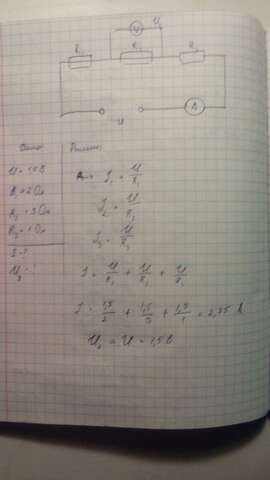 V
U
R₁
R₂
R₃
A
U
Дано
Решение
U = 1,5 В
R₁ = 2 Ом
R₂ = 3 Ом
R₃ = 1 Ом
I - ?
U₂ - ?
I₁ = U/R₁
I₂ = U/R₂
I₃ = U/R₃
I = U/R₁ + U/R₂ + U/R₃
I = 1,5/2 + 1,5/3 + 1,5/1 = 2,75 А
U₂ = U = 1,5 В